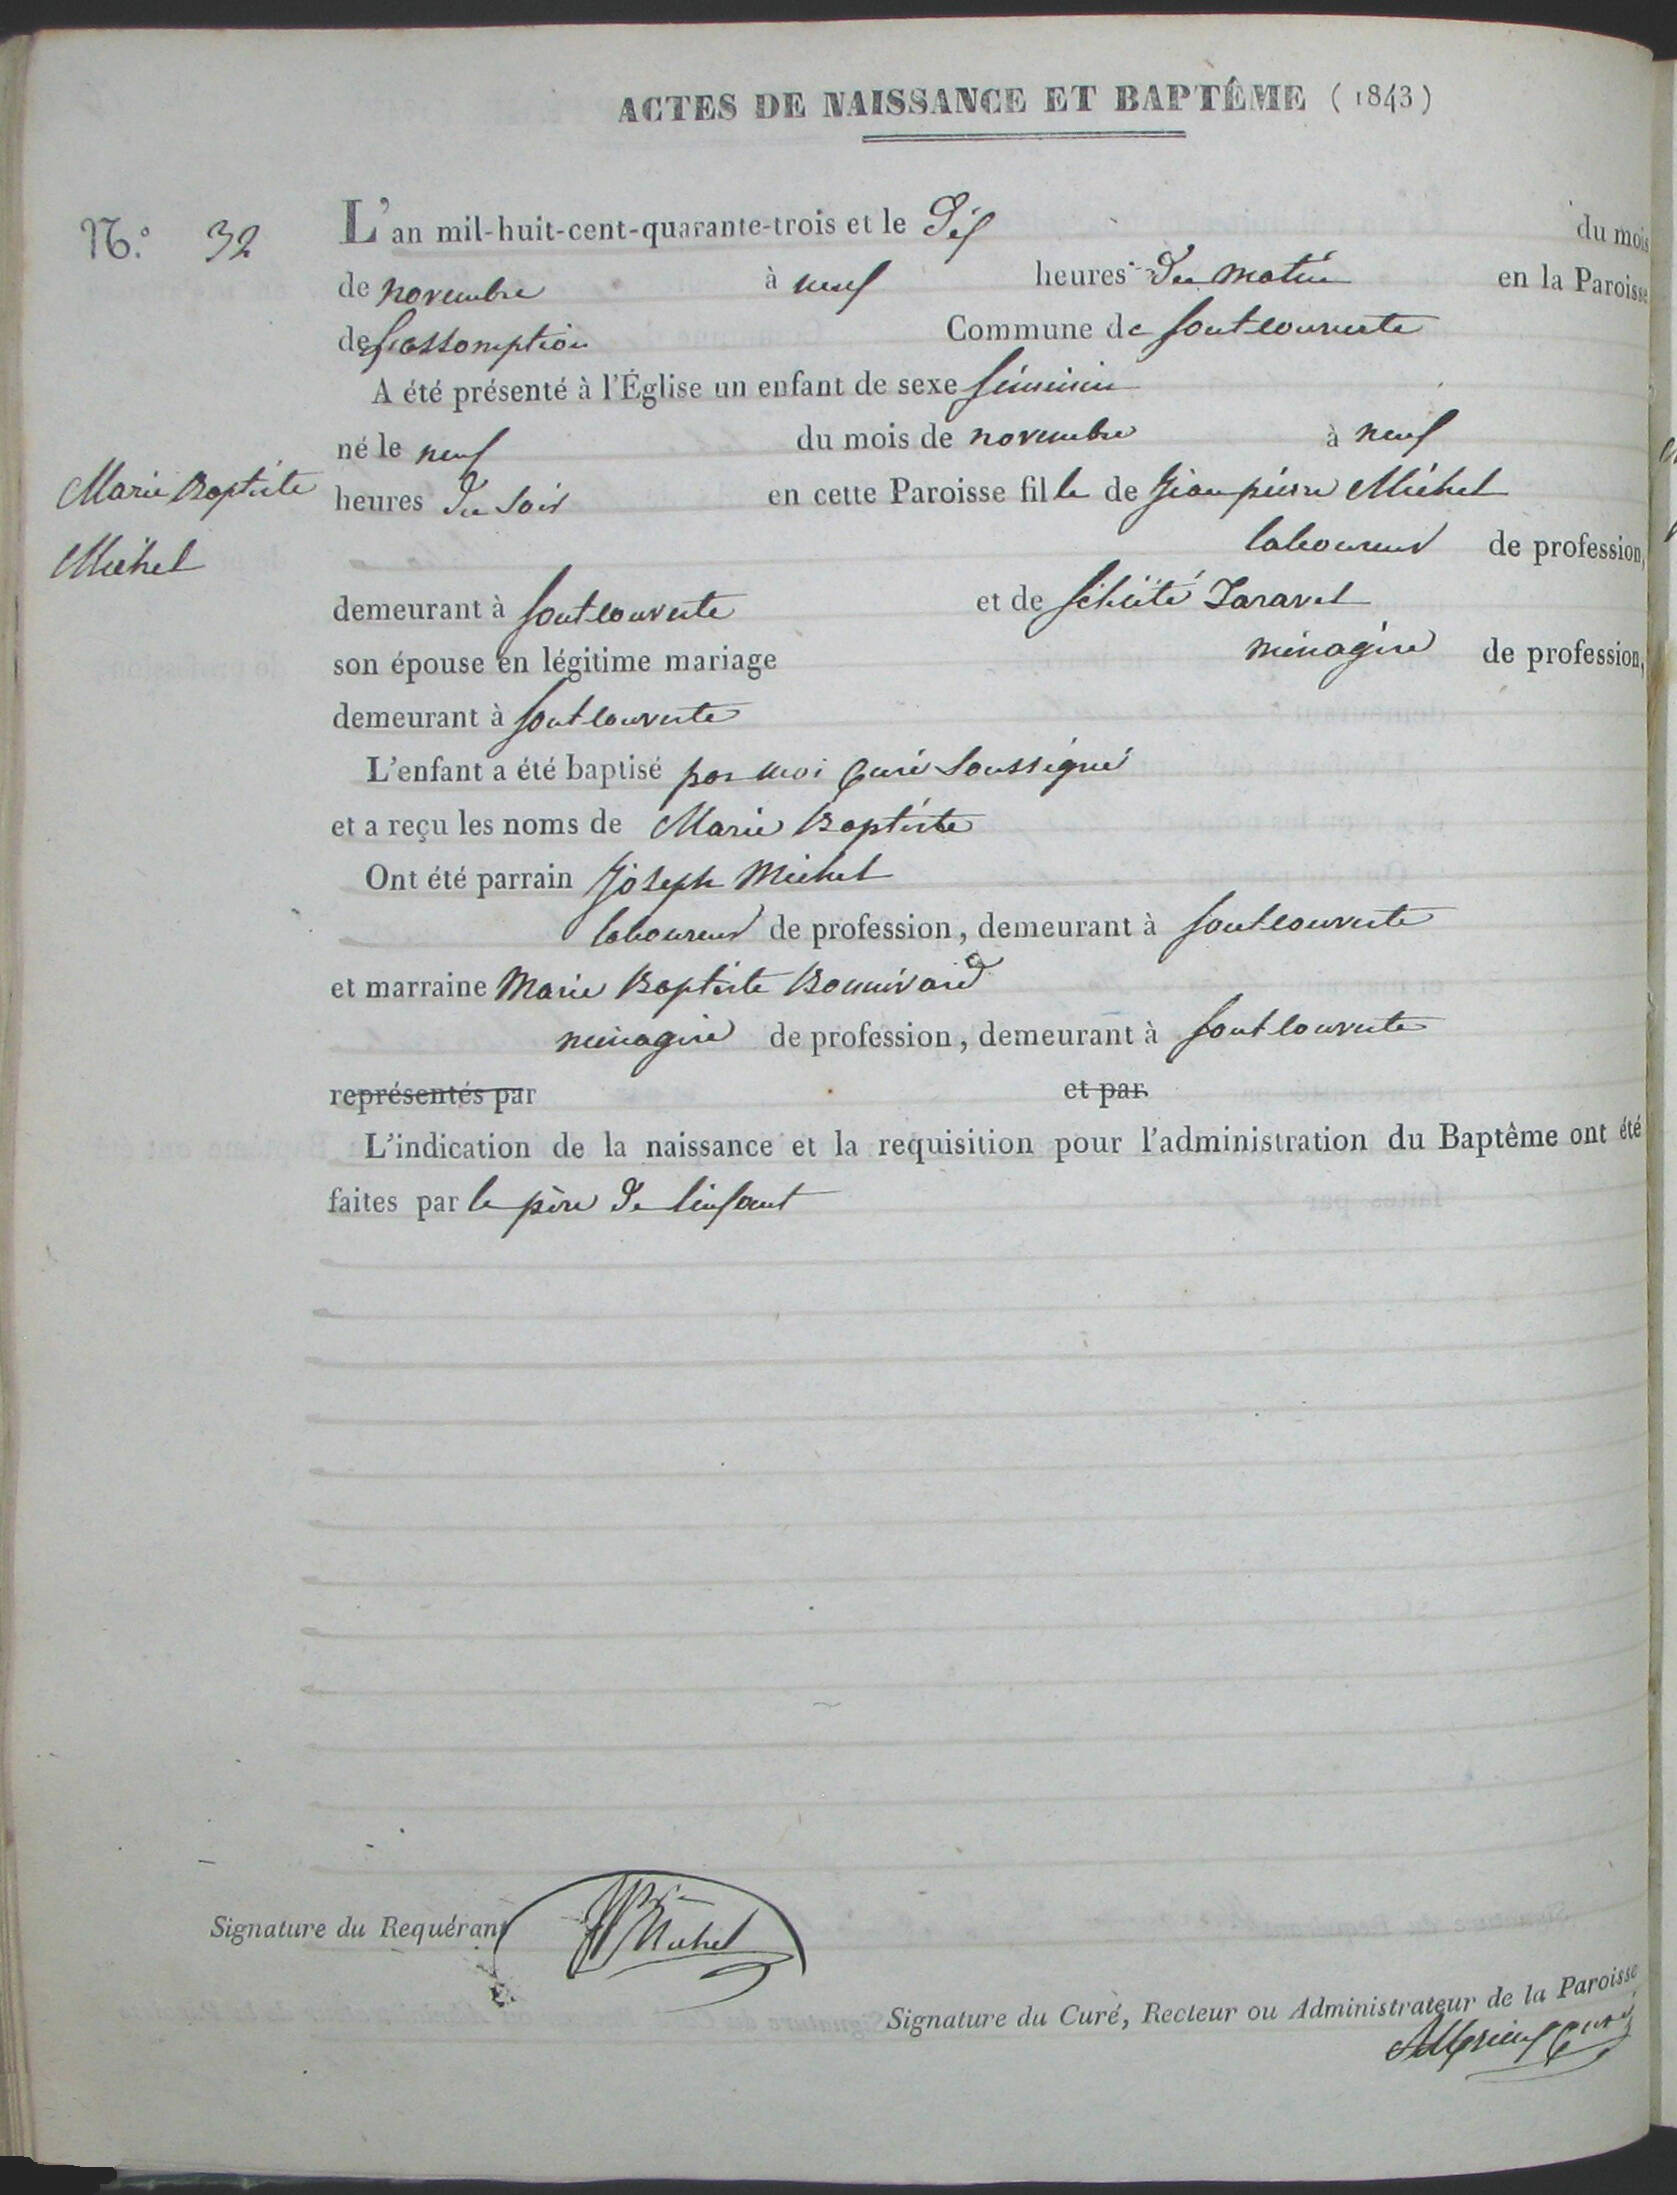 ACTES DE NAISSANCE ET BAPTÊME (1843)
N.º 32
L'an mil-huit-cent-quarante-trois et le Dix du mois
de novembre à neuf heures du matin en la Paroisse
de l'assomption Commune de fontcouverte
A été présenté à l'Église un enfant de sexe féminin
né le neuf du mois de novembre à neuf
Marie Baptiste
heures du soir en cette Paroisse fille de Jean pierre Michel
Michel
laboureur de profession,
demeurant à fontcouverte et de félicité Taravel
son épouse en légitime mariage ménagère de profession,
demeurant à fontcouverte
L'enfant a été baptisé par moi Curé soussigné
et a reçu les noms de Marie Baptiste
Ont été parrain Joseph Michel
laboureur de profession, demeurant à fontcouverte
et marraine Marie Baptiste Bonnivard
ménagère de profession, demeurant à fontcouverte
représentés par et par
L'indication de la naissance et la requisition pour l'administration du Baptême ont été
faites par le père de l'enfant
Signature du Requérant
Michel
Signature du Curé, Recteur ou Administrateur de la Paroisse
Curé